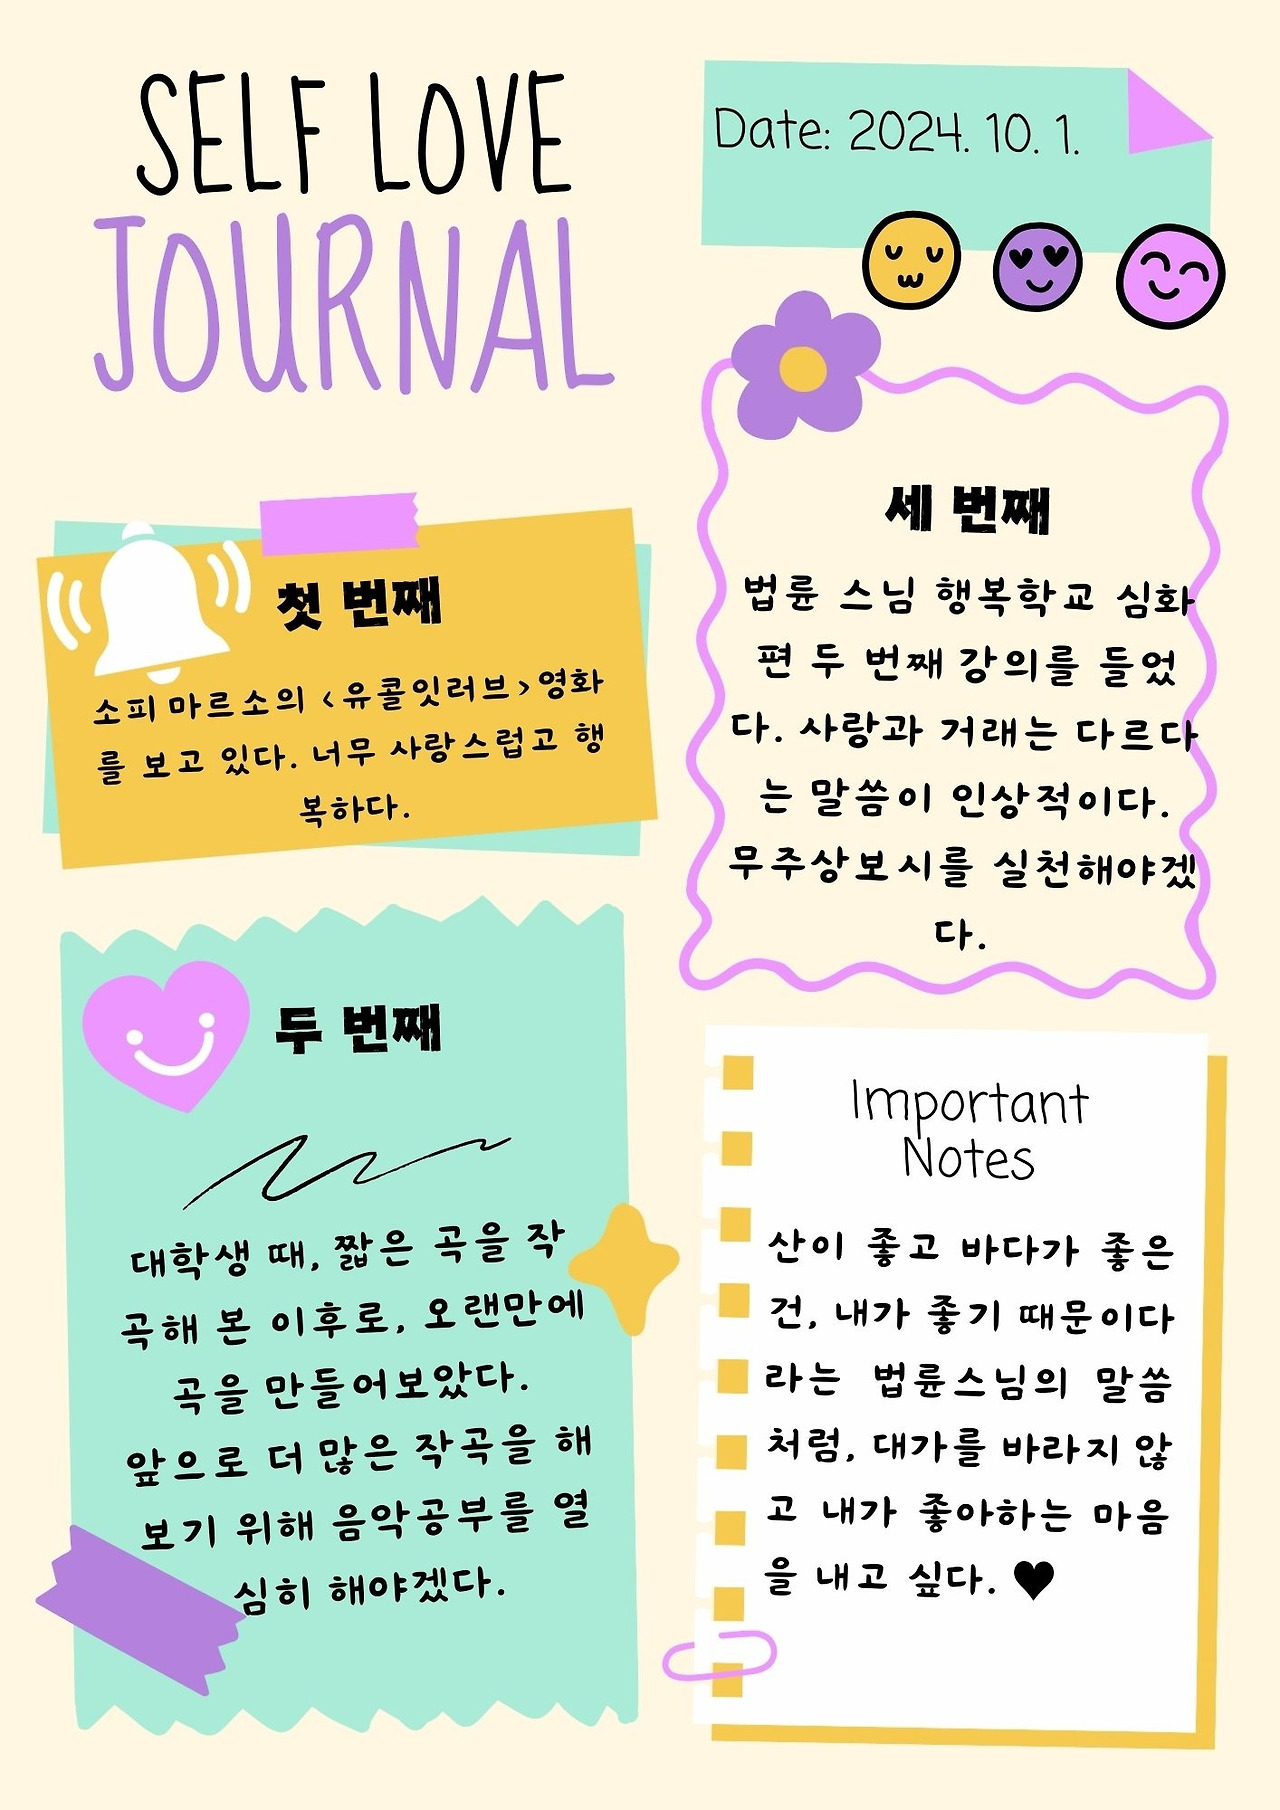 SELF LOVE
JOURNAL
Date: 2024. 10. 1.
첫 번째
소피 마르소의 <유콜잇러브>영화
를 보고 있다. 너무 사랑스럽고 행
복하다.
두 번째
대학생 때, 짧은 곡을 작
곡해 본 이후로, 오랜만에
곡을 만들어보았다.
앞으로 더 많은 작곡을 해
보기 위해 음악공부를 열
심히 해야겠다.
세 번째
법륜 스님 행복학교 심화
편 두 번째 강의를 들었
다. 사랑과 거래는 다르다
는 말씀이 인상적이다.
무주상보시를 실천해야겠
다.
Important
Notes
산이 좋고 바다가 좋은
건, 내가 좋기 때문이다
라는 법륜스님의 말씀
처럼, 대가를 바라지 않
고 내가 좋아하는 마음
을 내고 싶다. ♥